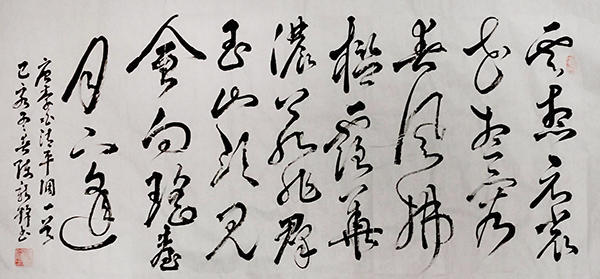 雲想衣裳
花想容
春風拂
檻露華
濃若非群
玉山頭見
會向瑤臺
月下逢
唐李白清平調一首
己亥 春 書